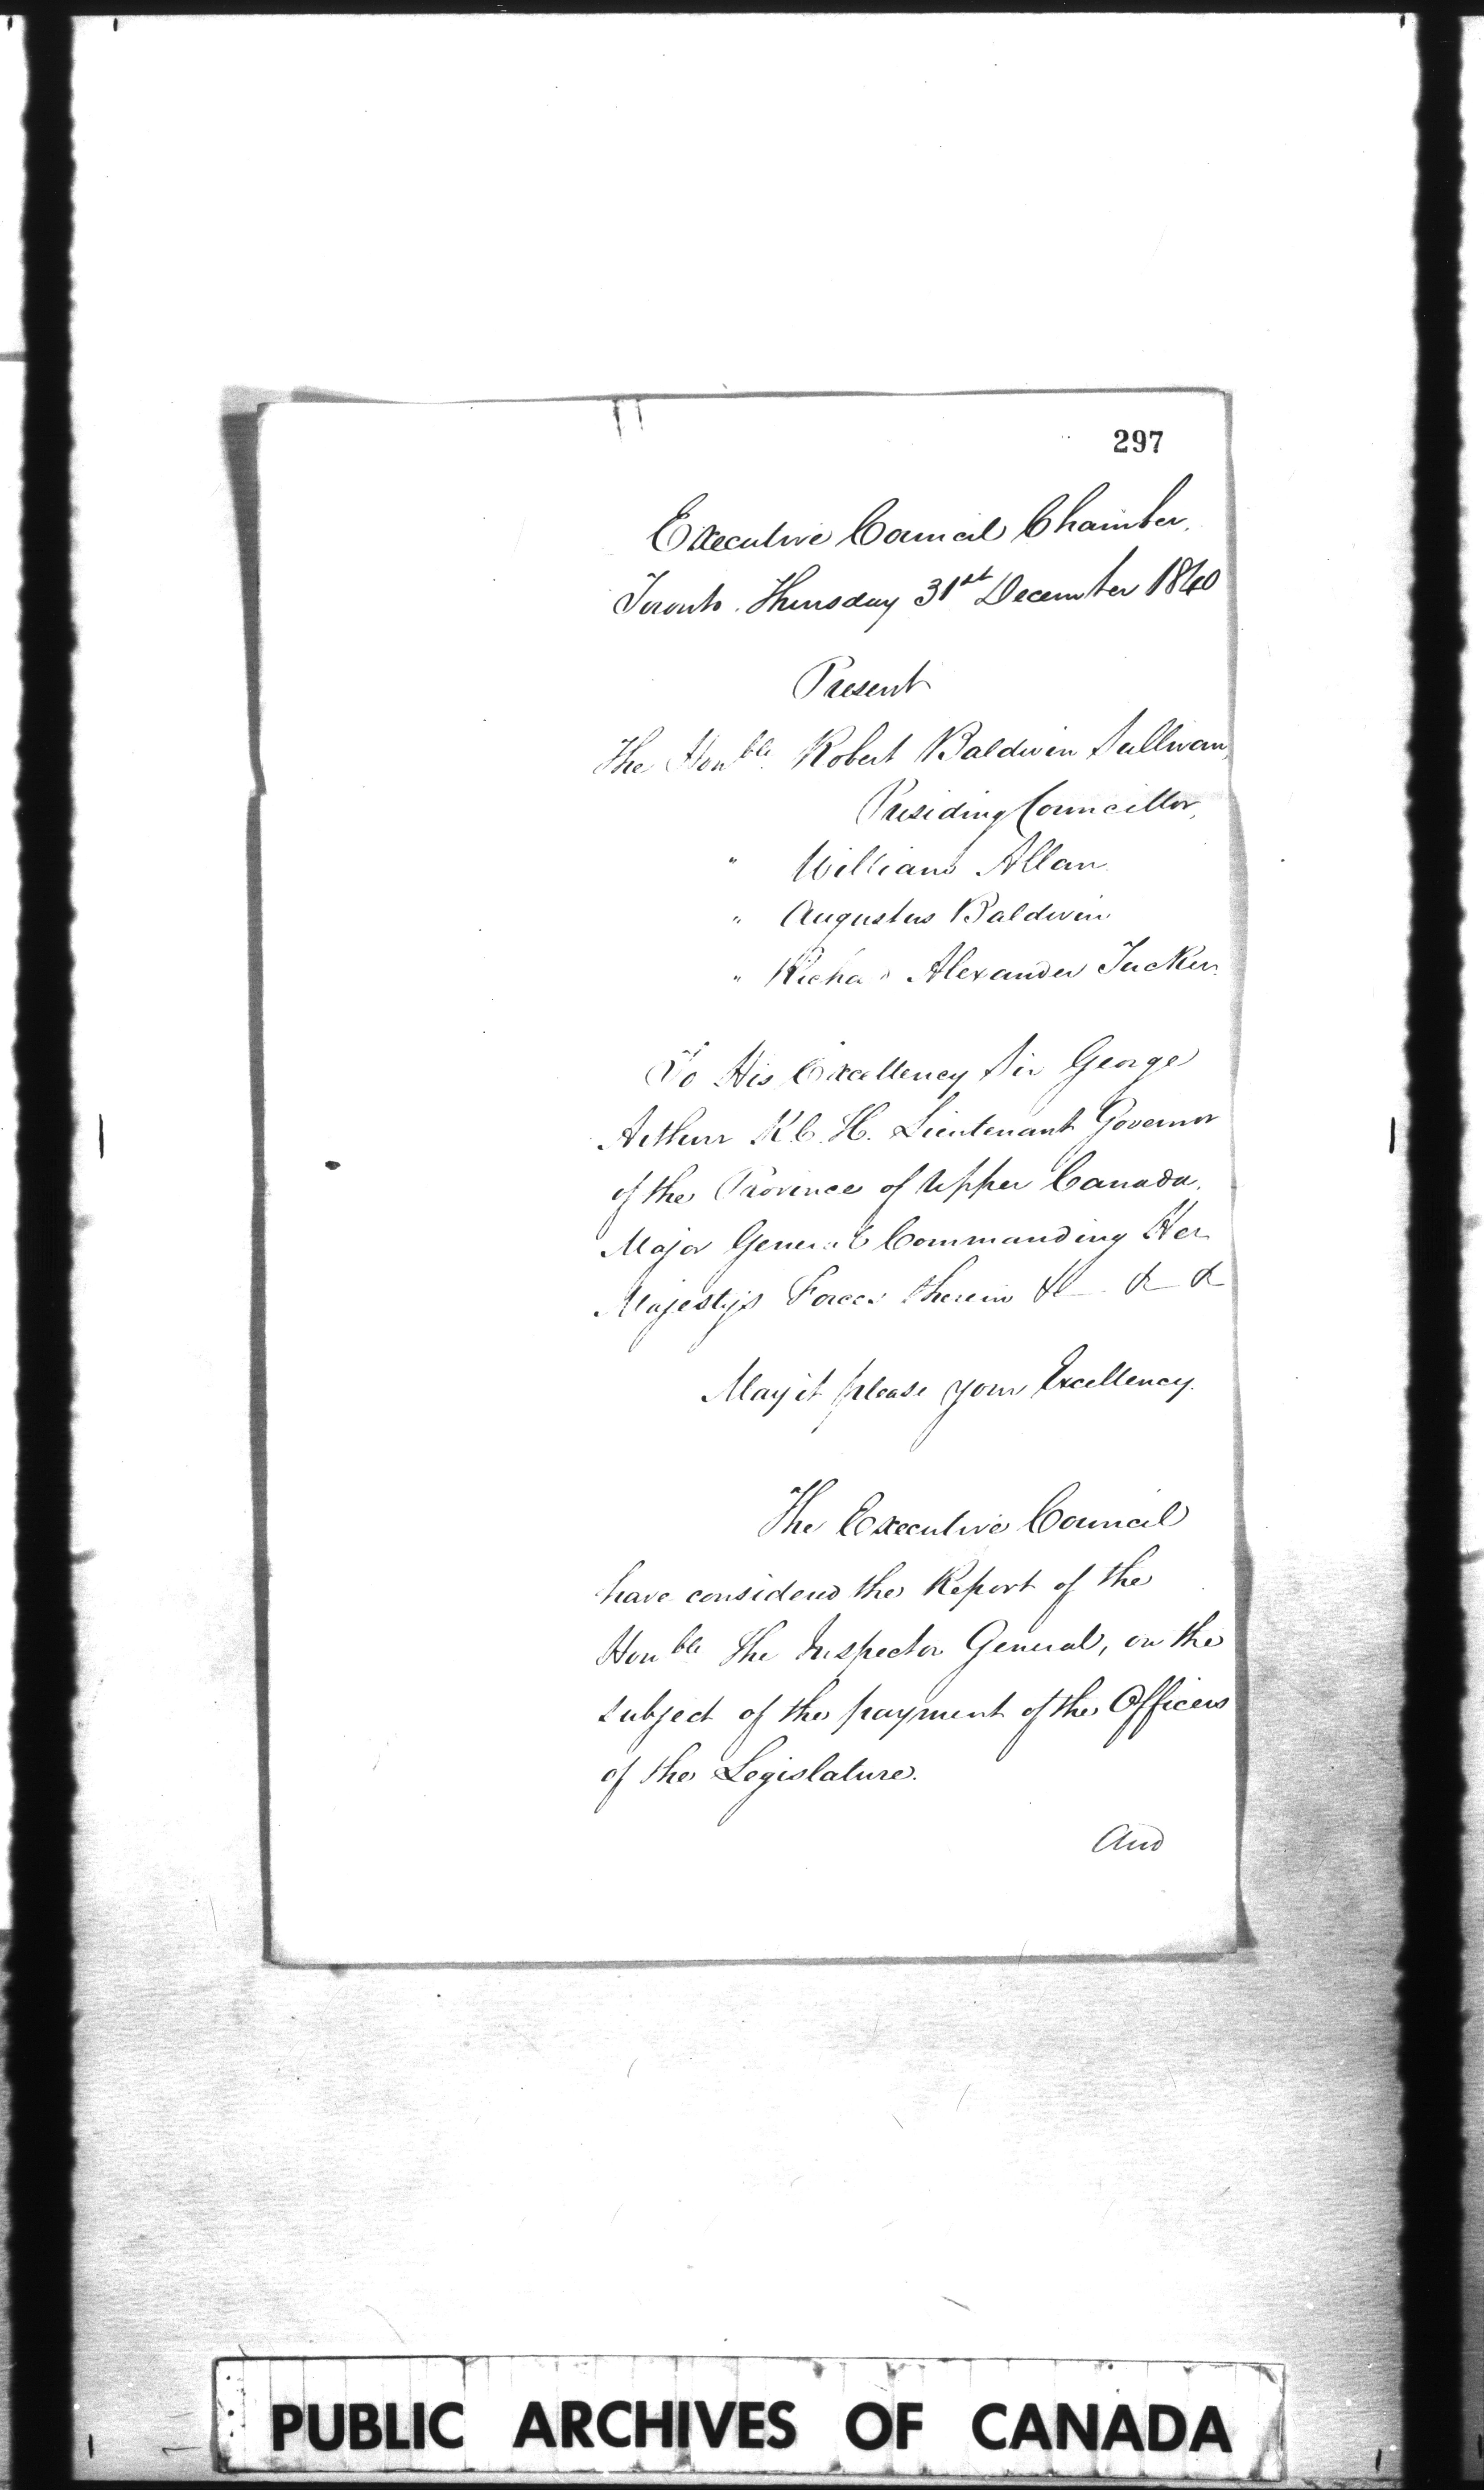 297
Executive Council Chamber,
Toronto. Thursday 31st December 1840
Present
The Honble. Robert Baldwin Sullivan,
Presiding Councillor,
" William Allan.
" Augustus Baldwin
" Richa Alexander Tucker.
To His Excellency Sir George
Arthur K.C.H. Lieutenant Governor
of the Province of Upper Canada,
Major General Commanding Her
Majesty's Forces therein &c — & — &
May it please your Excellency.
The Executive Council
have considered the Report of the
Honble The Inspector General, on the
subject of the payment of the Officers
of the Legislature.
And
PUBLIC ARCHIVES OF CANADA